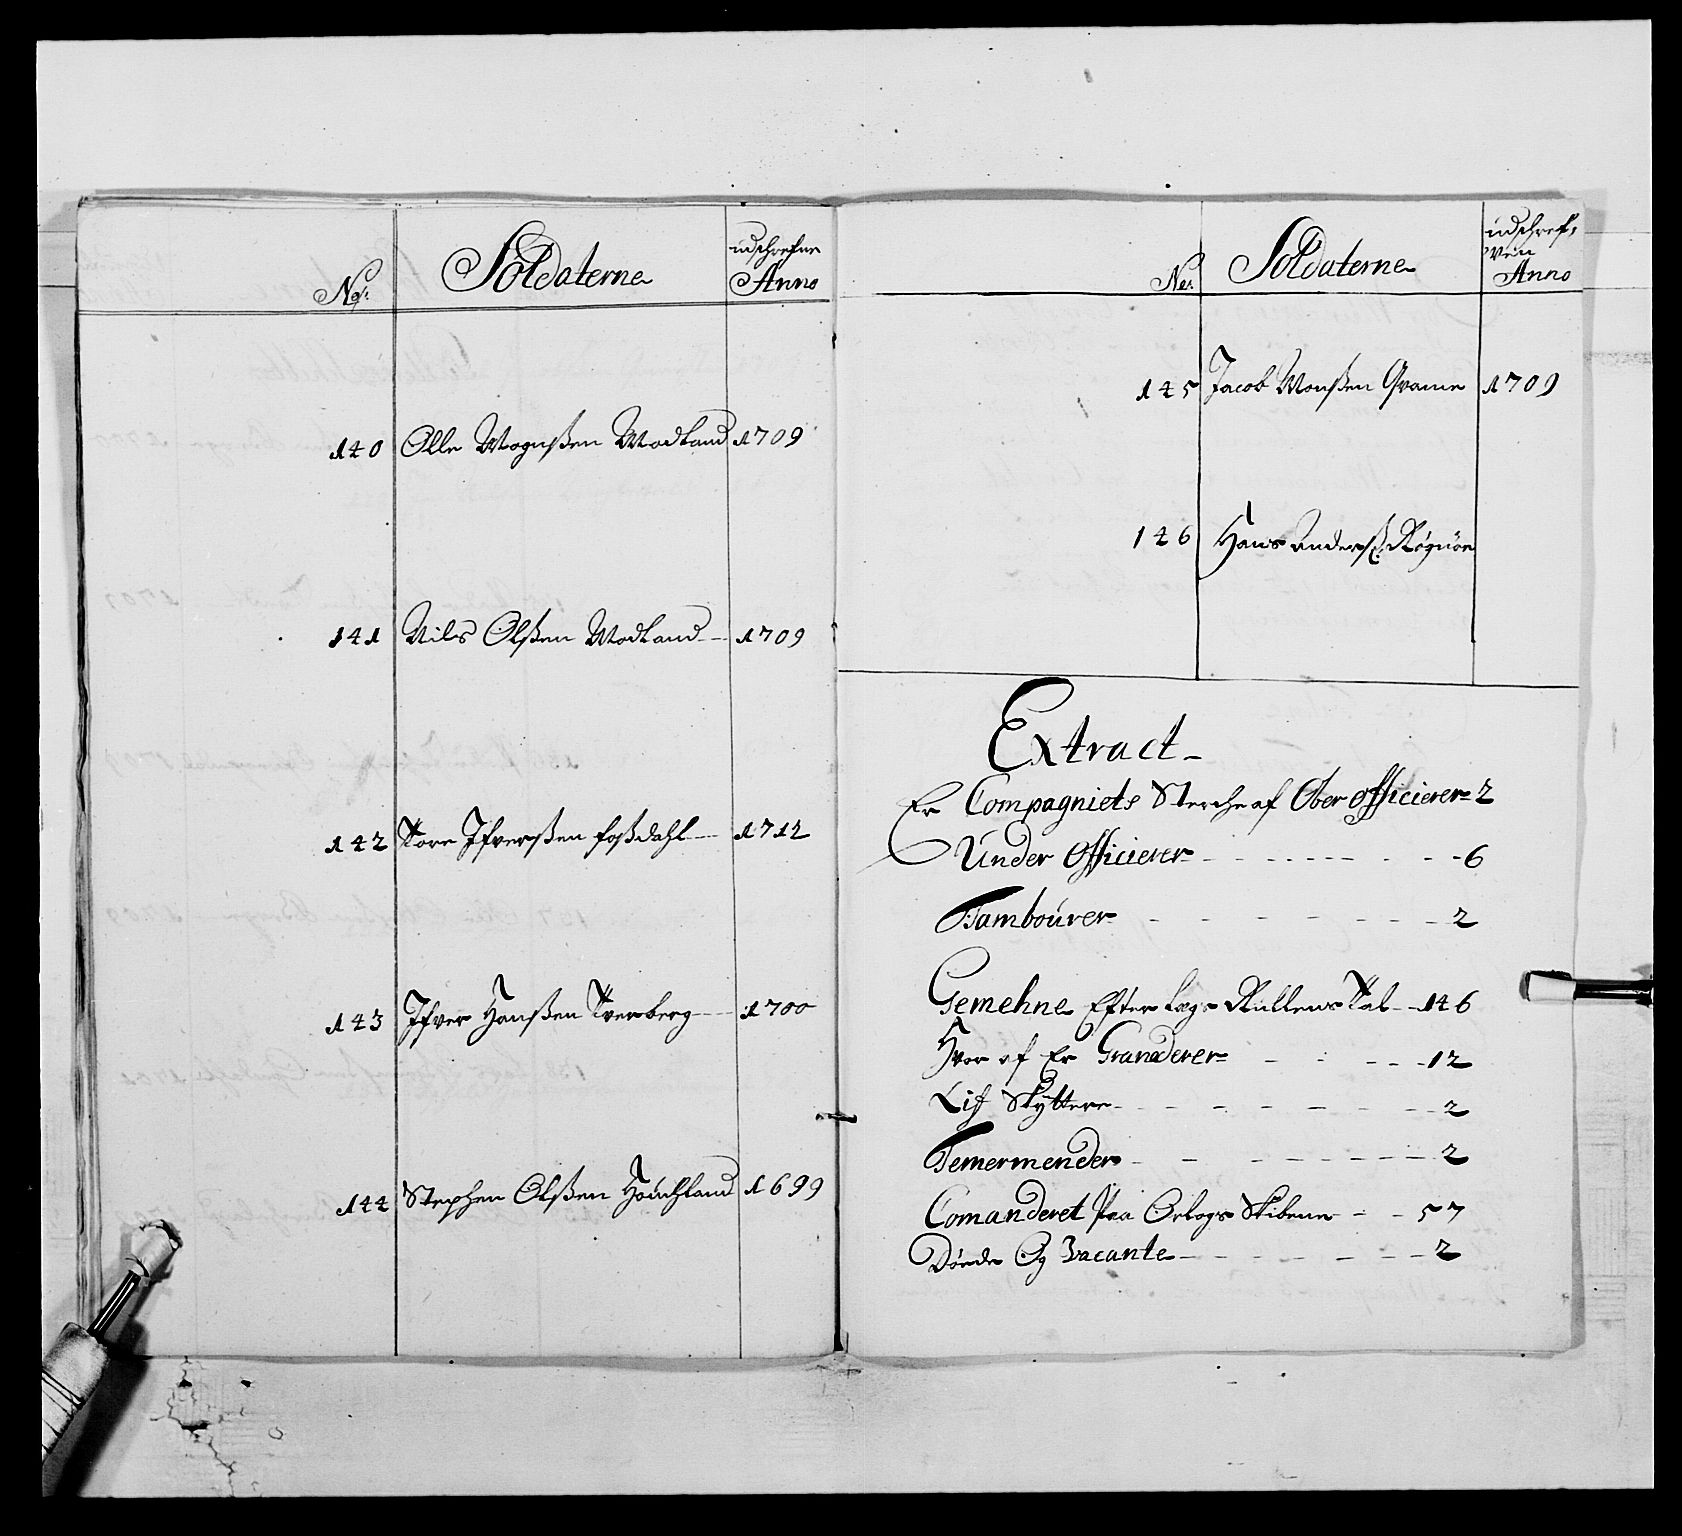 No: Soldaterne udschrefne Anno
140 Olle Mogenßen Modland 1709
141 Nils Olßen Modland 1709
142 Tore Ifverßen foßdahl 1712
143 Ifver Hanßen Kverberg 1700
144 Stephen Olßen Houchland 1699
No: Soldaterne udschref,
ven
Anno
145 Jacob Monßen Qvame 1709
146 Hans Anderß:
Extract
Er Compagniets Sterche af Ober officierer 2
Under Officierer 6
Tambourer 2
Gemehne Efter Legs Rullens Tal 146
Hvor af Er Granaderer 12
Lif Skyttere 2
Temermender 2
Comanderet Paa Orlogs Skibene 57
Døede Og Vacante 2